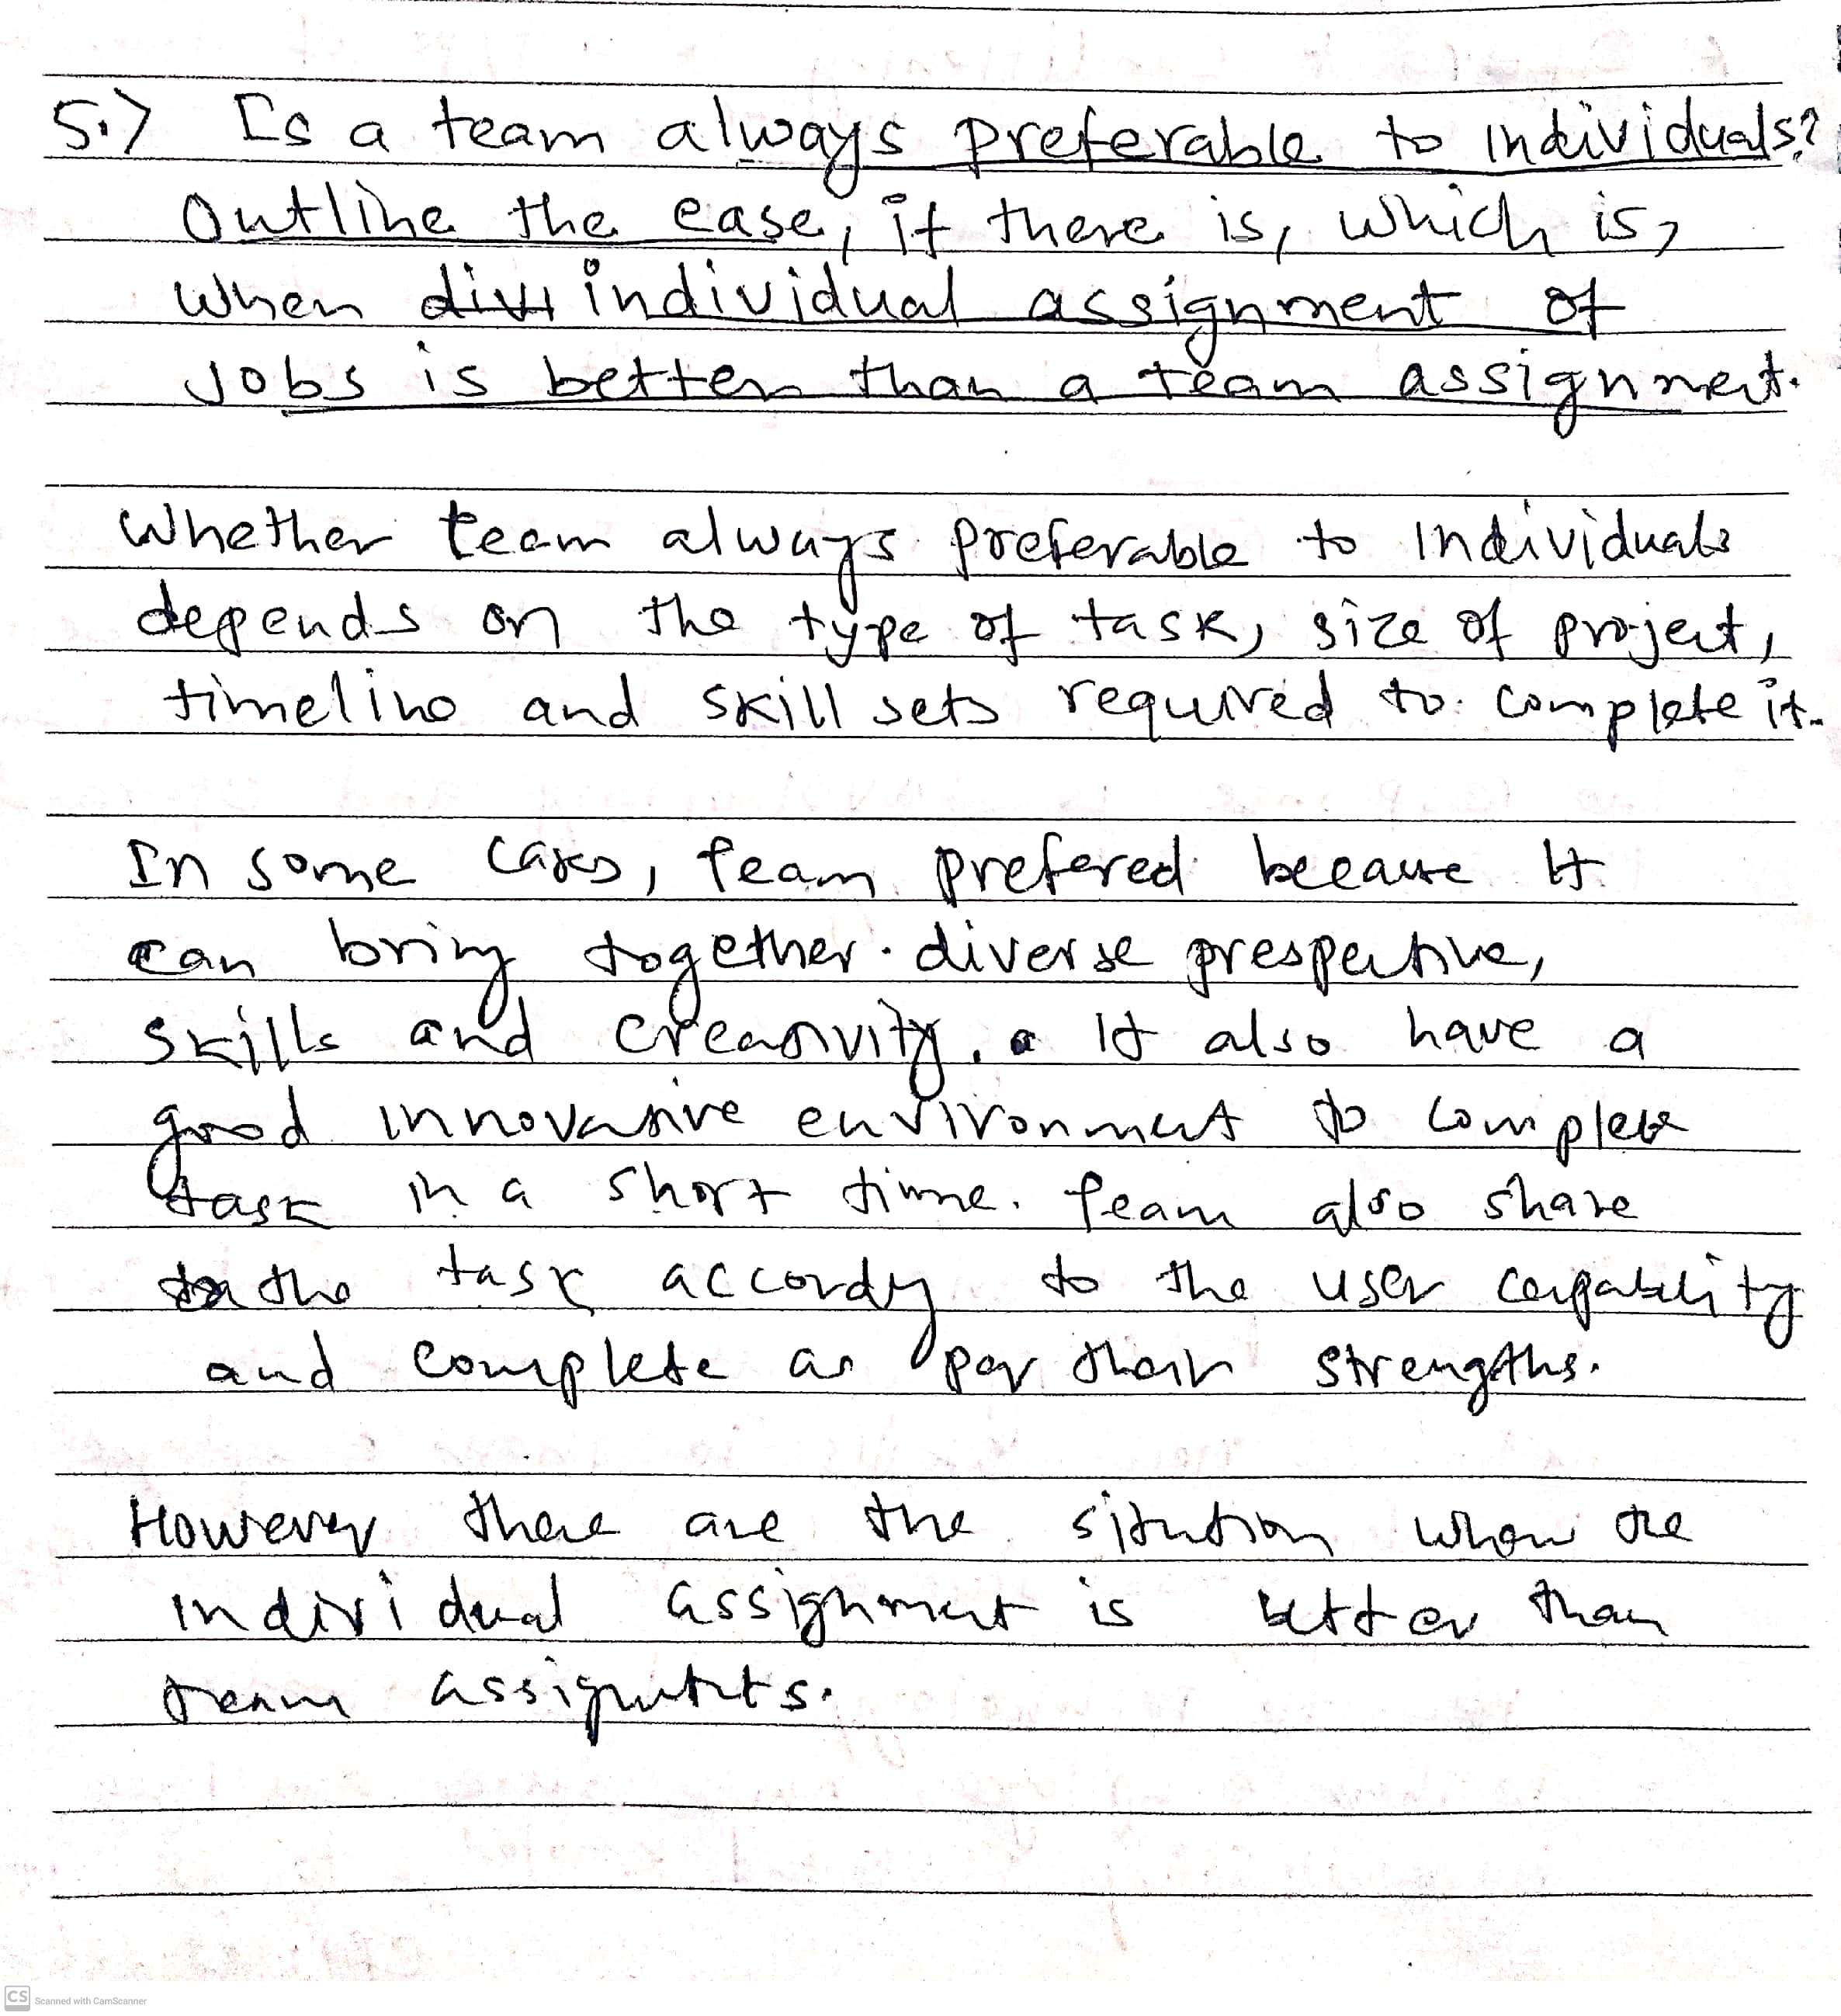 5.> Is a team always preferable to individuals?
Outline the case, if there is, which is,
when divi individual assignment of
Jobs is better than a team assignment.
Whether team always preferable to individuals
depends on the type of task, size of project,
timeline and skill sets required to complete it.
In some cases, team prefered because It
can bring together diverse prespective,
skills and creativity. It also have a
good innovative environment to complete
task in a short time. Team also share
the task accordy to the user capability
and complete as per their strengths.
However there are the sitution when the
individual assignment is better than
team
CS Scanned with CamScanner